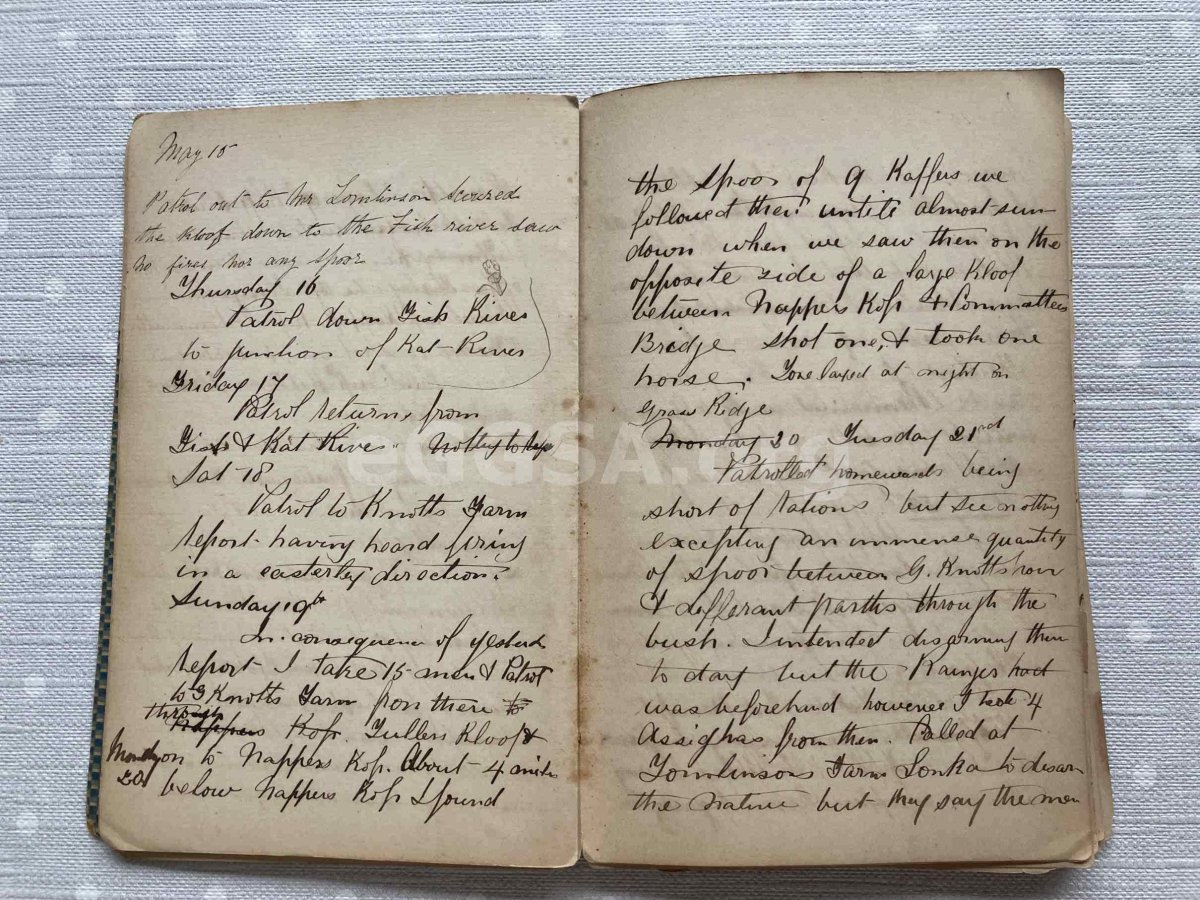 May 15
Patrol out to Mr Tomlinson scoured
the kloof down to the Fish river saw
no fires nor any spoor
Thursday 16
Patrol down Fish River
to junction of Kat River
Friday 17
Patrol returns from
Fish & Kat River
Sat 18
Patrol to Knotts Farm
report having heard firing
in a easterley direction.
Sunday 19th
In consequence of yesterd
report I take 15 men & Patrol
to G Knotts Farm from there to
through
Nappers Kop. Fullers Kloof &
Monday on to Nappers Kop. About 4 miles
20 below Nappers Kop I found
the spoor of 9 Kaffers we
followed them untile almost sun
down when we saw them on the
opposite side of a large Kloof
between Nappers Kop & Committees
Bridge shot one, & took one
horse. at night on
Grass Ridge
Monday 20 Tuesday 21rd
Patrolled homewards being
short of rations but see nothing
excepting an immense quantity
of spoor between G. Knotts
& defferant parths through the
bush. I intended disarming them
to day but the Ranges had
was beforehand however I took 4
Assighas from them. Called at
Tomlinsons Farm to disarm
the native but they say the men
eGGSA.org